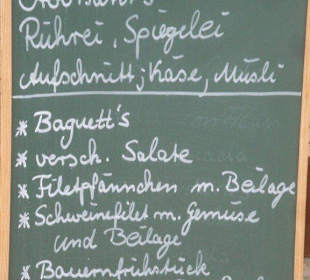 Rührei, Spiegelei
Aufschnitt, Käse, Müsli
* Baguett's
* versch. Salate
* Filetpfännchen m. Beilage
* Schweinefilet m. Gemüse
und Beilage
* Bauernfrühstück